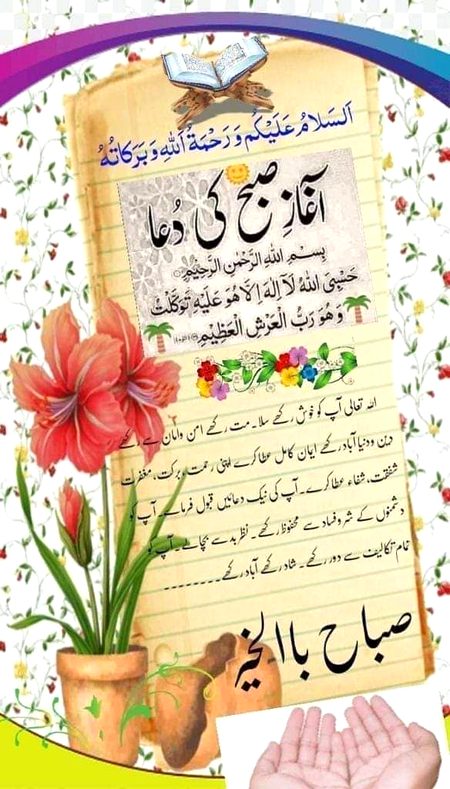 اَلسَلامُ عَلَيْكُم وَرَحْمَةُ اَللهِ وَبَرَكاتُهُ
آغازِ صبح کی دُعا
بِسْمِ اللهِ الرَّحْمٰنِ الرَّحِيْمِ
حَسْبِیَ اللهُ لَآ اِلٰهَ اِلَّا هُوَ عَلَيْهِ تَوَكَّلْتُ
وَهُوَ رَبُّ الْعَرْشِ الْعَظِيْمِ
اللہ تعالی آپ کو خوش رکھے سلامت رکھے امن وامان سے رکھے
دین ودنیا آباد رکھے ایمان کامل عطا کرے اپنی رحمت وبرکت، مغفرت
شفقت، شفاء عطا کرے۔ آپ کی نیک دعائیں قبول فرمائے۔ آپ کو
دشمنوں کے شر و فساد سے محفوظ رکھے۔ نظر بد سے بچائے۔ آپ کو
تمام تکالیف سے دور رکھے۔ شاد رکھے آباد رکھے۔۔۔۔۔۔۔۔۔
صباح باالخیر